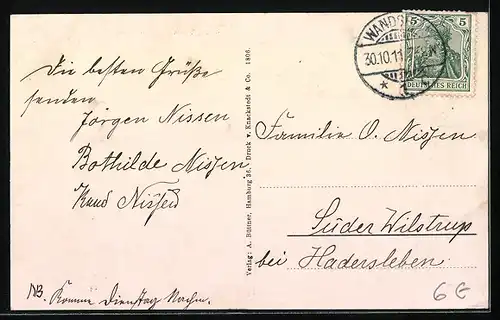 Die besten Grüße
senden
Jörgen Nissen
Bothilde Nissen
Knud Nissen
NB. Komme Dienstag Nachm.
Verlag: A. Büttner, Hamburg 36, Druck v. Knackstedt & Co. 1806.
WANDSBEK
30.10.11
5 5
DEUTSCHES REICH
Familie O. Nissen
Süder Wilstrup
bei Hadersleben
6 €